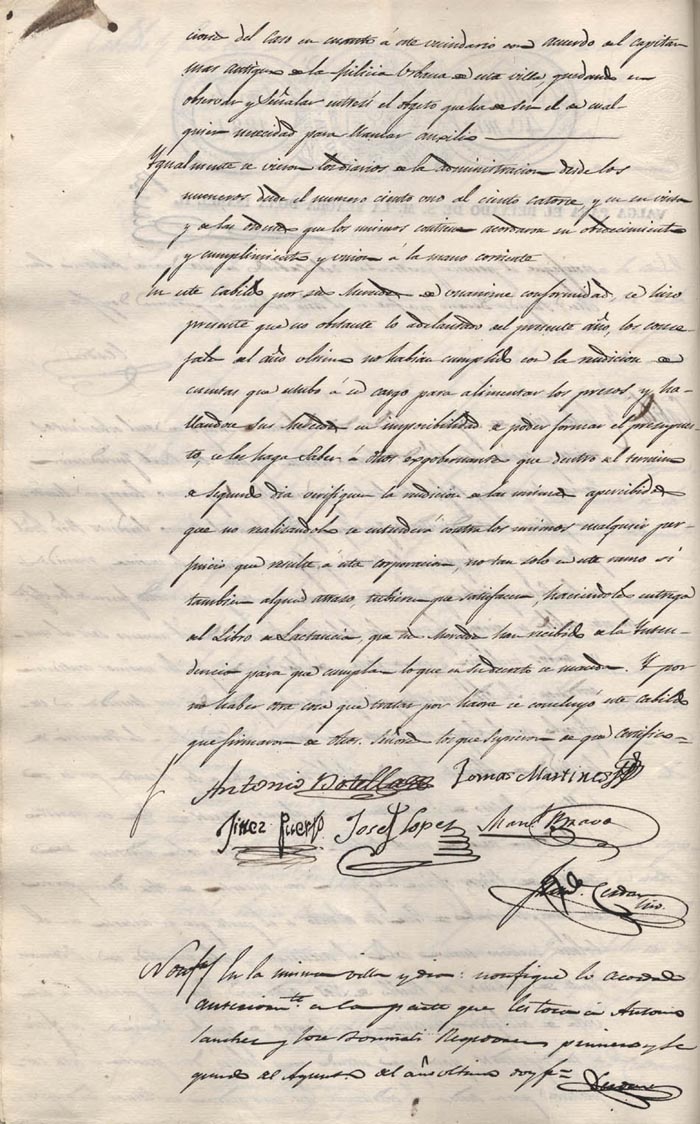 ciones del caso en cuanto á este vecindario con acuerdo del capitan
mas antiguo de la Milicia Urbana de esta villa, quedando en
observar y señalar entresí el objeto que ha de ser el de cual-
quiera necesidad para llamar auxilio
Ygualmente se vieron los diarios de la administracion desde los
numeros desde el numero ciento uno al ciento catorce, y en su vista
y de las ordenes que los mismos contienen acordaron su obedecimiento
y cumplimiento y union á la mano corriente
En este cabildo por sus Mercedes de unanime conformidad, se hizo
presente que no obstante lo adelantado del presente año, los conce-
jales del año ultimo no habian cumplido con la rendicion de
cuentas que estubo á su cargo para alimentar los presos, y ha-
llandose sus Mercedes en imposibilidad de poder formar el presupues-
to, se les haga saber á dhos exgobernantes que dentro del termino
de segundo dia verifiquen la rendicion de las mismas apercibidos
que no realizandolo se entenderá contra los mismos cualquier per-
juicio que resulte á esta corporacion, no tan solo en este ramo si
tambien algun atraso, tubieren que satisfacer, haciendoles entrega
del Libro de Lactancia, que sus Mercedes han recibido de la Inten-
dencia para que cumplan lo que en su decreto se manda. Y por
no haber otra cosa que tratar por haora se concluyó este cabildo
que firmaron de dhos. Señores los que supieron de que certifico=
Antonio Botella Tomas Martines
Jinez Puerto Josef Lopez Man.l Bravo
Notif.n En la misma villa y dia: notifique lo acordado
anteriorm.te en la parte que les toca á Antonio
Sanchez y Jose Regidores primero y se
gundo del Ayunt.o del año ultimo doy fe=